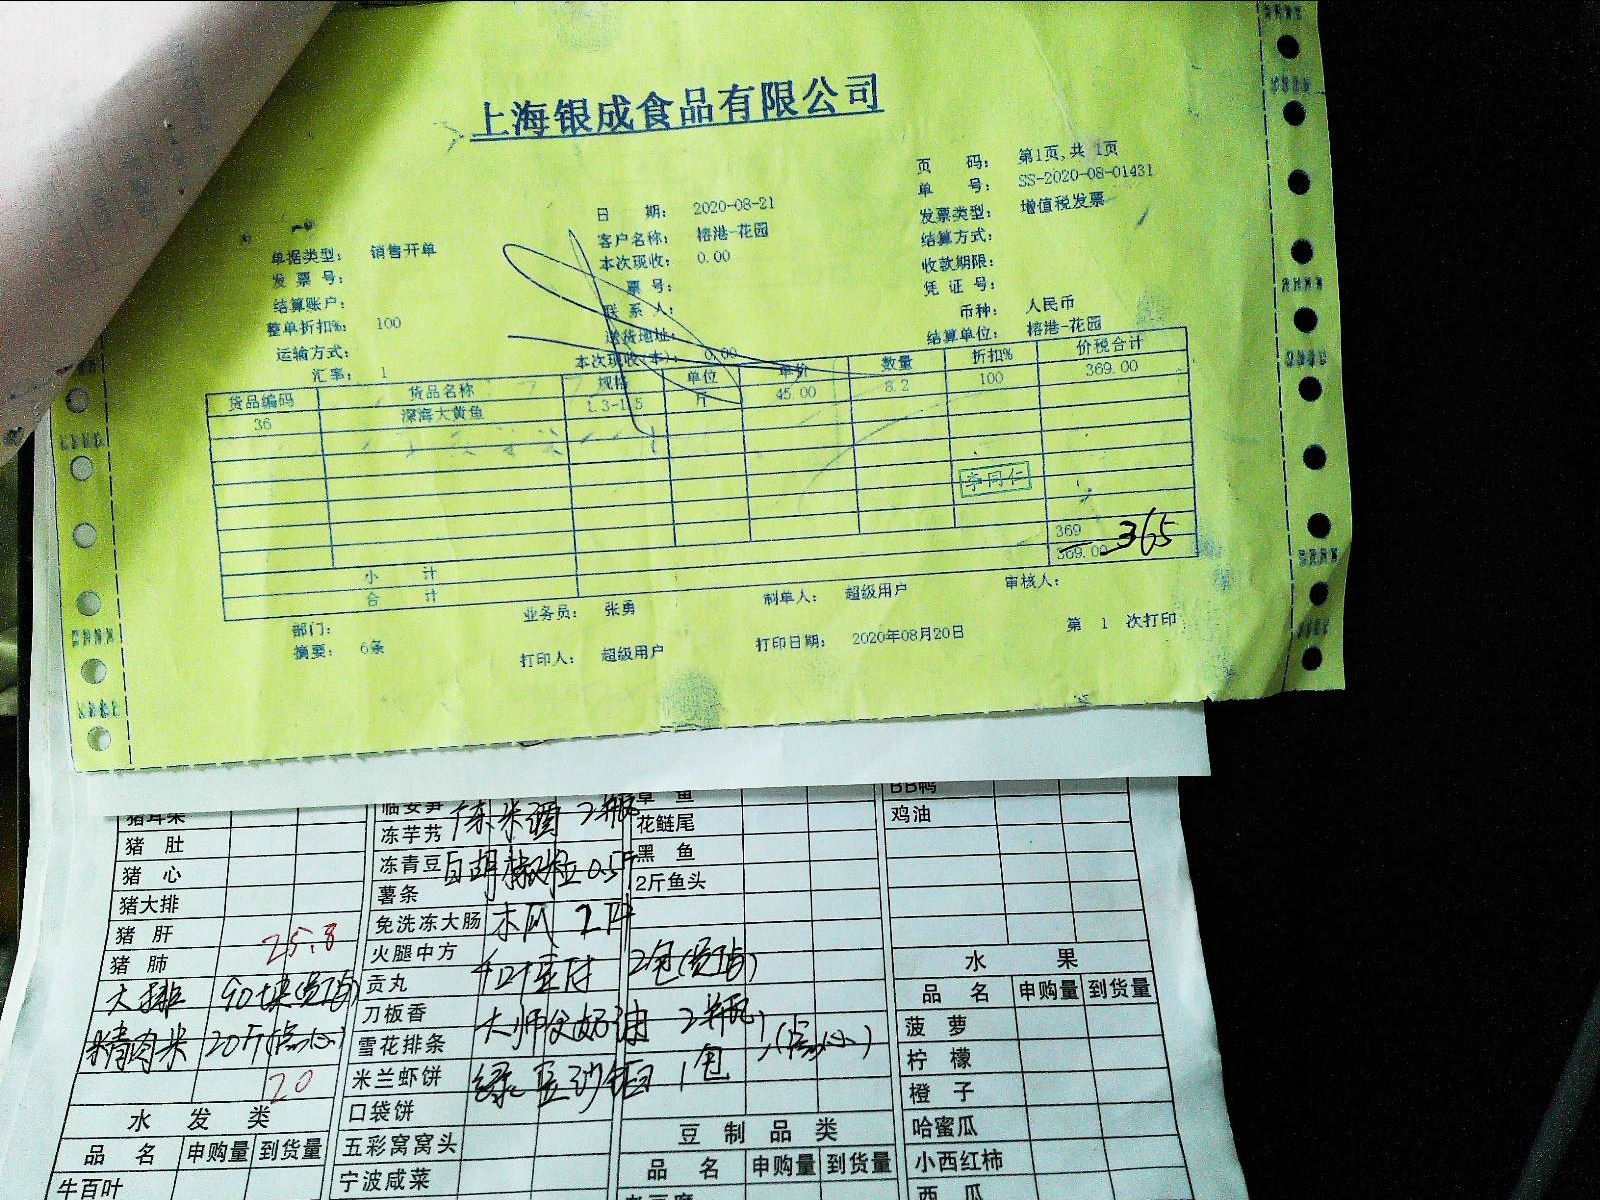 上海银成食品有限公司
页 码： 第1页,共 1页
单 号： SS-2020-08-01431
日 期： 2020-08-21
发票类型： 增值税发票
客户名称： 榕港-花园
结算方式：
单据类型： 销售开单
本次现收： 0.00
收款期限：
发 票 号：
票 号：
凭 证 号：
结算账户：
联 系 人：
币种： 人民币
整单折扣%： 100
送货地址：
结算单位： 榕港-花园
运输方式：
本次现收(本)： 0.00
汇率： 1
货品编码 货品名称 规格 单位 单价 数量 折扣% 价税合计
36 深海大黄鱼 1.3-1.5 斤 45.00 8.2 100 369.00
李同仁
小 计 369
合 计 369.00 365
部门： 业务员： 张勇 制单人： 超级用户 审核人：
摘要： 6条 打印人： 超级用户 打印日期： 2020年08月20日 第 1 次打印
猪耳朵
猪 肚
猪 心
猪大排
猪 肝 25.8
猪 肺
大排 90块
精肉米 20斤(点心)
20
水 发 类
品 名 申购量 到货量
牛百叶
临安笋
冻芋艿 米酒 2瓶
冻青豆 白胡椒粒 0.5斤
薯条
免洗冻大肠 木瓜 2
火腿中方
贡丸 2包
刀板香
雪花排条 2瓶 (点心)
米兰虾饼 绿豆沙 1包
口袋饼
五彩窝窝头
宁波咸菜
草 鱼
花鲢尾
黑 鱼
2斤鱼头
豆 制 品 类
品 名 申购量 到货量
BB鸭
鸡油
水 果
品 名 申购量 到货量
菠 萝
柠 檬
橙 子
哈蜜瓜
小西红柿
西 瓜